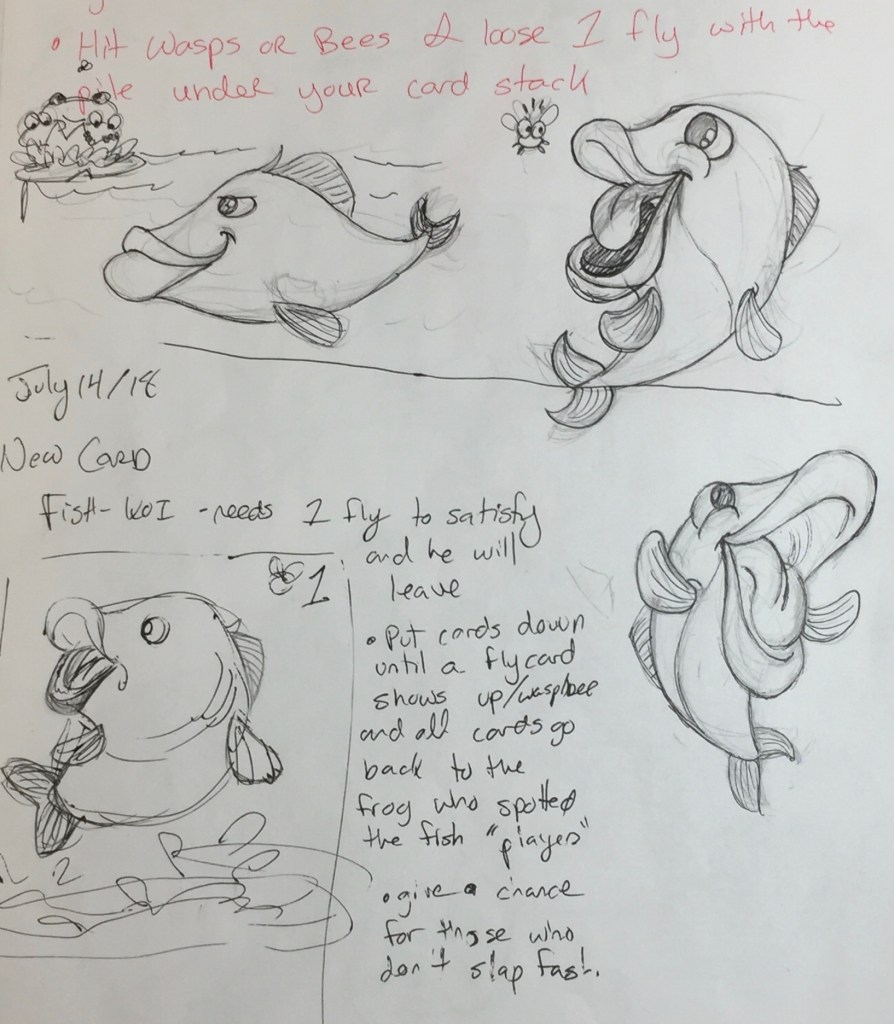 • Hit wasps or Bees & loose 1 fly with the
pile under your card stack
July 14/18
New Card
Fish - KOI - needs 1 fly to satisfy
and he will
leave
1
• Put cards down
until a fly card
shows up/wasp/bee
and all cards go
back to the
frog who spotted
the fish "player"
• give a chance
for those who
don't slap fast.